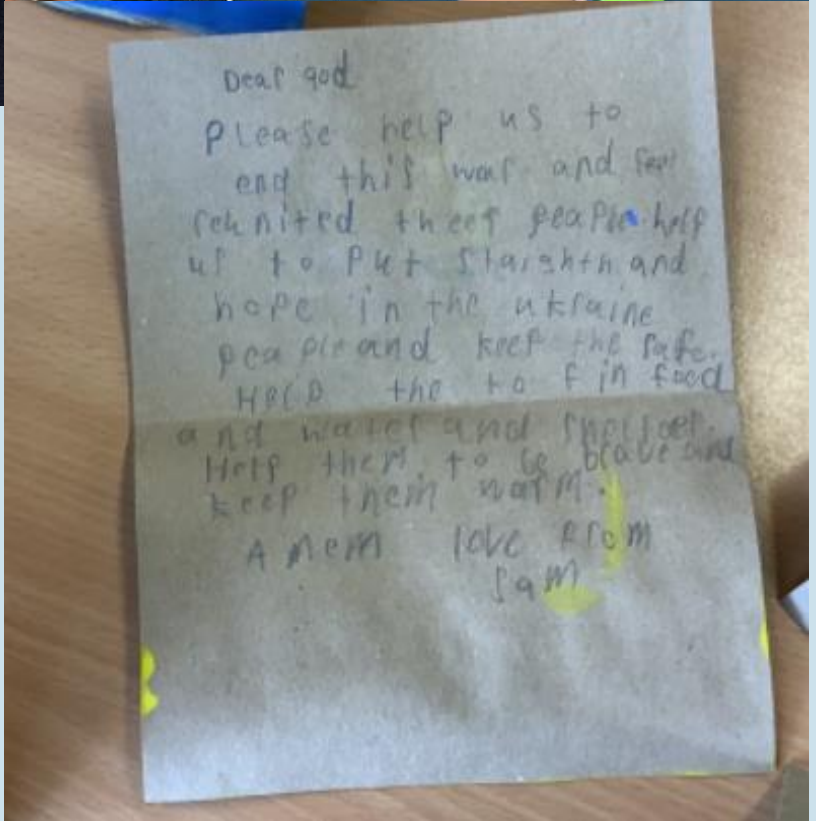 Dear god
please help us to
end this war and feel
reunited theef peaple help
us to put staighth and
hope in the ukraine
peaple and keep the safe.
Help the to fin food
and water and shelter.
Help them to be brave and
keep them warm.
Amem love from
Sam